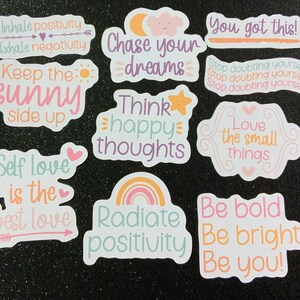 Inhale positivity
Exhale negativity
Chase your
dreams
You got this!
Keep the
sunny
side up
Think
happy
thoughts
Stop doubting yourself
Stop doubting yourself
Stop doubting yourself
Love
the small
things
Self love
is the
best love
Radiate
positivity
Be bold
Be bright
Be you!